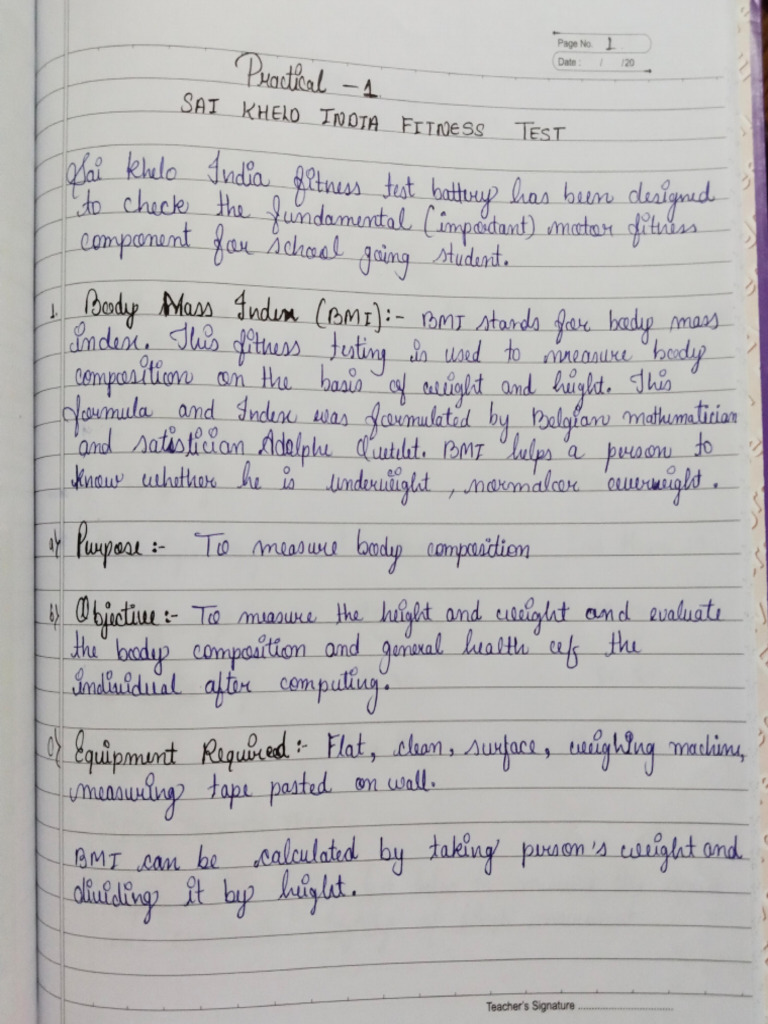 Page No. 1
Date : / /20
Practical - 1
SAI KHELO INDIA FITNESS TEST
Sai khelo India fitness test battery has been designed
to check the fundamental (important) motor fitness
component for school going student.
1. Body Mass Index (BMI):- BMI stands for body mass
index. This fitness testing is used to measure body
composition on the basis of weight and height. This
formula and Index was formulated by Belgian mathematician
and satistician Adolphe Quetlet. BMI helps a person to
know whether he is underweight, normal or overweight.
a) Purpose :- To measure body composition
b) Objective :- To measure the height and weight and evaluate
the body composition and general health of the
individual after computing.
c) Equipment Required :- Flat, clean, surface, weighing machine,
measuring tape pasted on wall.
BMI can be calculated by taking person's weight and
dividing it by height.
Teacher's Signature ..............................